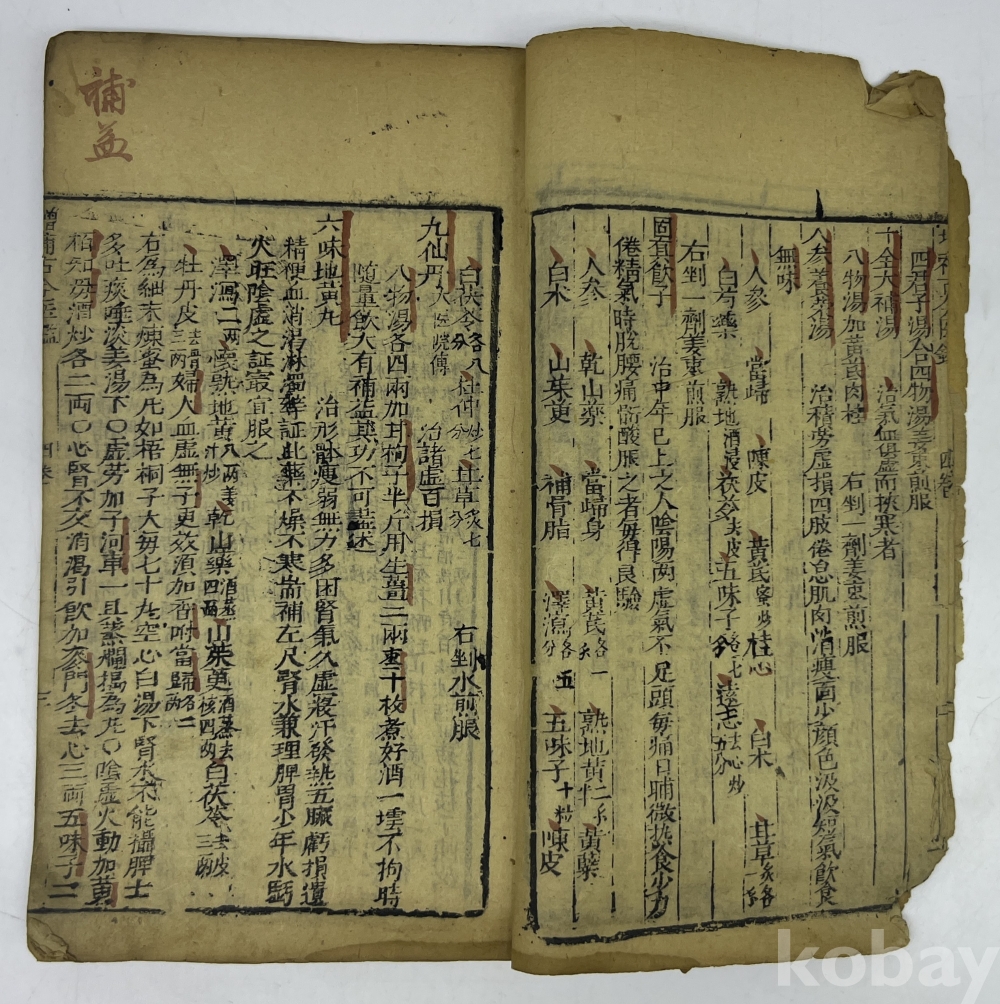 四君子湯合四物湯姜棗煎服
十全大補湯 治氣血俱虛而挾寒者
八物湯加黃芪肉桂 右剉一劑姜棗煎服
人參養榮湯 治積勞虛損四肢倦怠肌肉消瘦面少顏色汲汲短氣飲食
無味
人參 當歸 陳皮 黃芪蜜炒 桂心 白术 甘草炙各一
白芍藥 熟地酒浸 茯苓去皮 五味子 遠志去心炒
右剉一劑姜棗煎服
固真飲子 治中年已上之人陰陽兩虛氣不足頭每痛日晡微熱食少力
倦精氣時脫腰痛 酸服之者每得良驗
人參 乾山藥 當歸身 黃芪各一 熟地黃 黃蘗
白术 山茱萸 補骨脂 澤瀉各五分 五味子十粒 陳皮
白茯苓各八分 杜仲炒七分 甘草炙七分 右剉水煎服
九仙丹 治諸虛百損
八物湯各四兩加枸子半斤用生薑二兩棗十枚煮好酒一壜不拘時
隨量飲大有補益其功不可盡述
六味地黃丸 治形體瘦弱無力多困腎氣久虛寢汗發熱五臟虧損遺
精便血消渴淋濁等証此藥不燥不寒耑補左尺腎水兼理脾胃少年水虧
火旺陰虛之証最宜服之
懷熟地黃八兩姜汁炒 乾山藥酒蒸四兩 山茱萸酒蒸去核四兩 白茯苓去皮三兩
澤瀉二兩
牡丹皮去骨三兩 婦人血虛無子更效須加香附當歸各二兩
右為細末煉蜜為丸如梧桐子大每七十丸空心白湯下腎水不能攝脾土
多吐痰唾淡姜湯下〇虛勞加子河車一具蒸爛搗為丸〇陰虛火動加黃
栢知母酒炒各二両〇心腎不交消渴引飲加麥門冬去心三両五味子二
補益
四卷